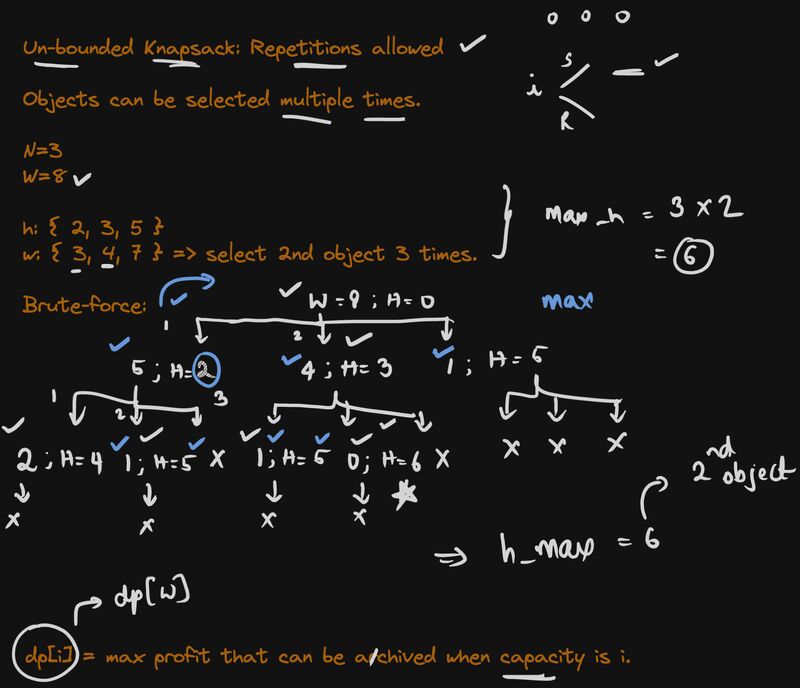 o o o
Un-bounded Knapsack: Repetitions allowed ✓
i S R ✓
Objects can be selected multiple times.
N=3
W=8 ✓
h: { 2, 3, 5 }
w: { 3, 4, 7 } => select 2nd object 3 times.
max_h = 3 x 2
= 6
Brute-force: ✓
✓ W = 8 ; H = 0
max
1 2
✓ 5 ; H=2 ✓ 4 ; H= 3 ✓ 1 ; H= 5
1 2 3
✓ ✓ ✓ ✓ ✓ ✓ ✓ ✓ ✓
2 ; H=4 1 ; H=5 X 1 ; H= 5 0 ; H=6 X X X X
X X X X
2nd object
=> h_max = 6
dp[W]
dp[i] = max profit that can be archived when capacity is i.